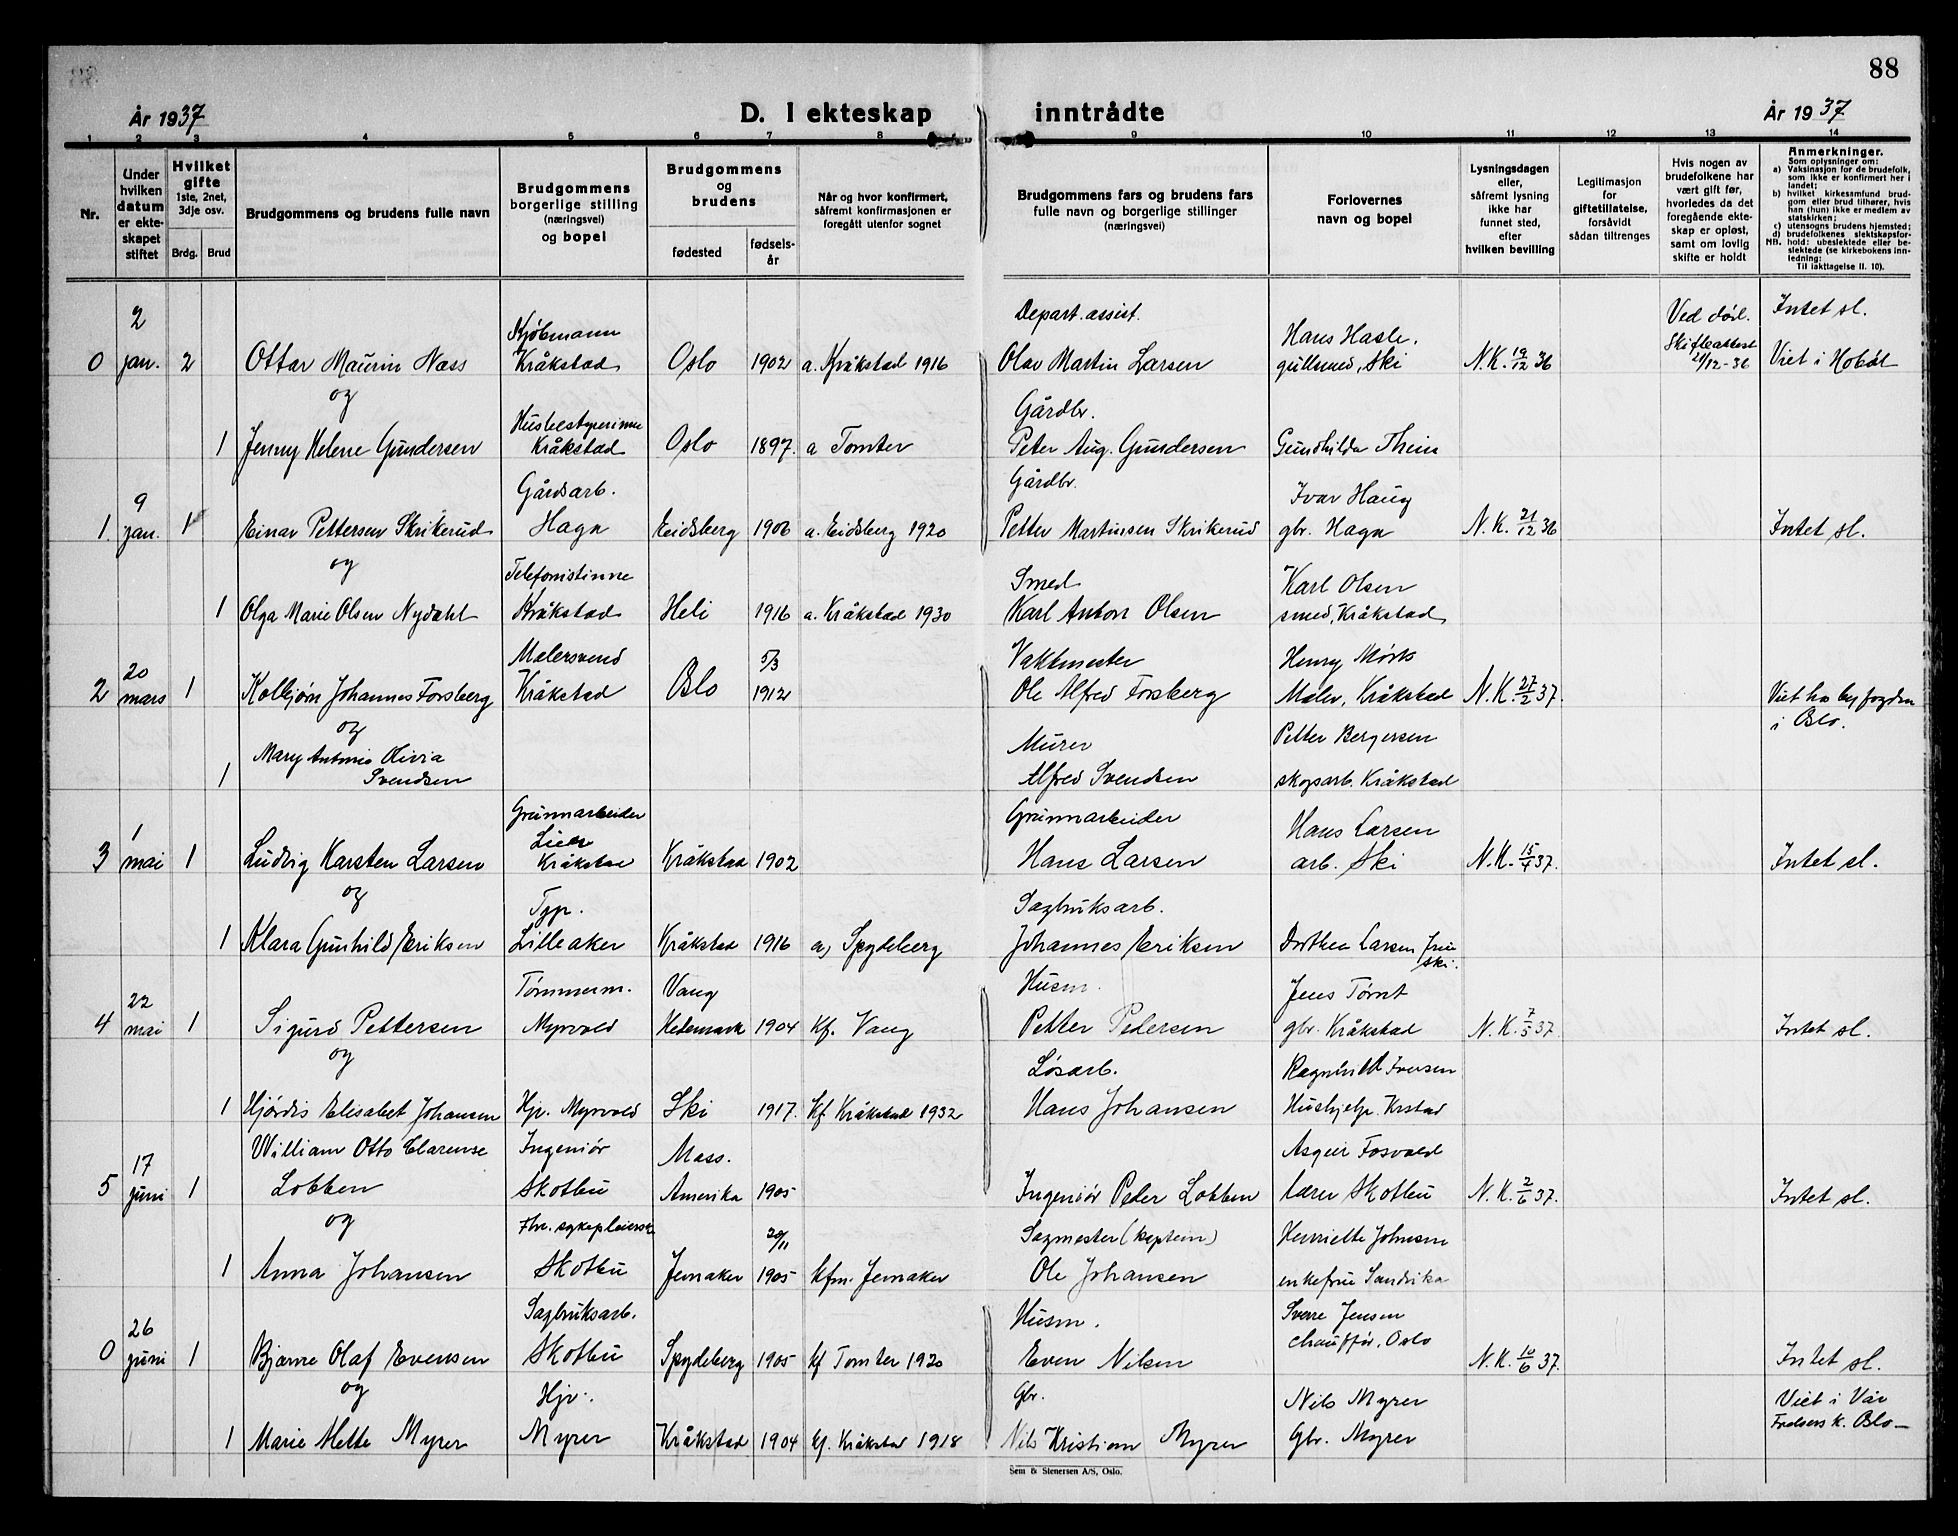 88
År 1937
D. I ekteskap inntrådte
År 1937
1 2 3 4 5 6 7 8 9 10 11 12 13 14
Nr.
Under hvilken datum er ekteskapet stiftet
Hvilket gifte 1ste, 2net, 3dje osv.
Brdg. Brud
Brudgommens og brudens fulle navn
Brudgommens borgerlige stilling (næringsvei) og bopel
Brudgommens og brudens
fødested
fødselsår
Når og hvor konfirmert, såfremt konfirmasjonen er foregått utenfor sognet
Brudgommens fars og brudens fars fulle navn og borgerlige stillinger (næringsvei)
Forlovernes navn og bopel
Lysningsdagen eller, såfremt lysning ikke har funnet sted, efter hvilken bevilling
Legitimasjon for giftetillatelse, forsåvidt sådan tiltrenges
Hvis nogen av brudefolkene har vært gift før, hvorledes da det foregående ekteskap er opløst, samt om lovlig skifte er holdt
Anmerkninger.
Som oplysninger om:
a) Vaksinasjon for de brudefolk, som ikke er konfirmert her i landet;
b) hvilket kirkesamfund brudgom eller brud tilhører, hvis han (hun) ikke er medlem av statskirken;
c) utensogns brudens hjemsted;
d) brudefolkenes slektskapsforhold: ubeslektede eller beslektede (se kirkebokens innledning;
NB. Til iakttagelse II. 10).
2 Kjøbmann Depart. assist. Hans Hasle, Ved død. Intet sl.
0 jan. 2 Ottar Maurin Næss Kråkstad Oslo 1902 a. Kråkstad 1916 Olav Martin Larsen gullsmed, Ski N.K. 19/12 36 Skifteattest 21/12-36 Viet i Hobøl
og
Husbestyrerinne Gårdbr.
1 Jenny Helene Gundersen Kråkstad Oslo 1897. a Tomter Peter Aug. Gundersen Gundhilda Thein
9 Gårdsarb. Gårdbr. Ivar Haug
1. jan. 1 Einar Pettersen Skrikerud Haga Eidsberg 1906 a. Eidsberg 1920 Petter Martinsen Skrikerud gbr. Haga N.K. 21/12 36 Intet sl.
og
Telefonistinne Smed Karl Olsen
1 Olga Marie Olsen Nydahl Kråkstad Heli 1916 a. Kråkstad 1930 Karl Anton Olsen smed, Kråkstad
20 Malersvend 5/3 Vaktmester Henry Mørk
2 mars 1 Kolbjørn Johannes Forsberg Kråkstad Oslo 1912 Ole Alfred Forsberg Maler, Kråkstad N.K. 27/2 37. Viet hos byfogden i Oslo.
og
Mary Antonie Olivia Murer Petter Bergersen
1 Svendsen Alfred Svendsen skogsarb. Kråkstad
1 Grunnarbeider Lier Grunnarbeider Hans Larsen
3 mai 1 Ludvig Karsten Larsen Kråkstad Kråkstad 1902 Hans Larsen arb. Ski N.K. 15/4 37. Intet sl.
og
Typ. Sagbruksarb.
1 Klara Gunhild Eriksen Lilleaker Kråkstad 1916 a, Spydeberg Johannes Eriksen Dorthea Larsen frue Ski.
22 Tømmerm. Vang Husm. Jens Tømt
4 mai 1 Sigurd Pettersen Myrvold Hedemark 1904 kf. Vang Petter Pedersen gbr. Kråkstad N.K. 7/5 37. Intet sl.
og
Løsarb. Ragnhild Iversen
1 Hjørdis Elisabet Johansen Hjv. Myrvold Ski 1917. kf Kråkstad 1932 Hans Johansen Hushjelp. Krstad
17 William Otto Clarense Ingeniør Mass. Asgeir Fosvold
5 juni 1 Lobben Skotbu Amerika 1905 Ingeniør Peter Lobben lærer Skotbu N.K. 2/6 37. Intet sl.
og
Fhv. sykepleierske 20/11 Sagmester (kaptein) Henriette Johnsen
1 Anna Johansen Skotbu Jernaker 1905 kfm. Jernaker Ole Johansen enkefrue Sandvika
26 Sagbruksarb. Husm. Sverre Jensen
0 juni 1 Bjarne Olaf Evensen Skotbu Spydeberg 1905 kf Tomter 1920 Even Nilsen chauffør, Oslo N.K. 10/6 37. Intet sl.
og
Hjv. Gbr. Nils Myrer Viet i Vår
1 Marie Mette Myrer Myrer Kråkstad 1904 kf. Kråkstad 1918 Nils Kristian Myrer Gbr. Myrer Frelsers k. Oslo
Sem & Stenersen A/S, Oslo.